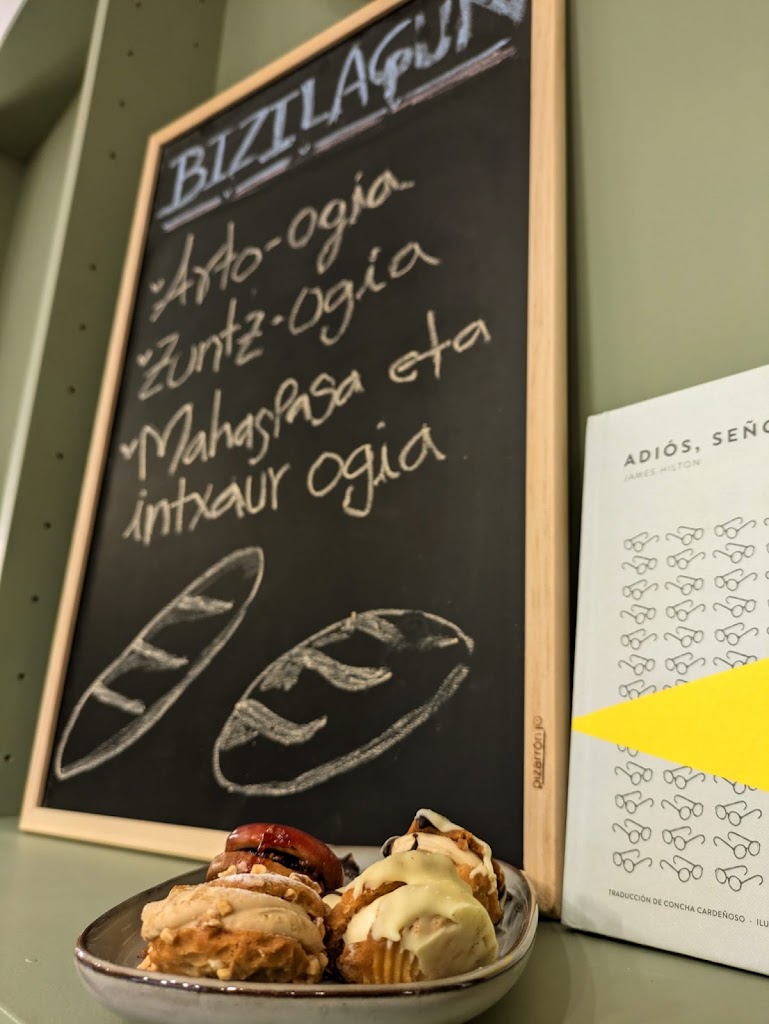 BIZILAGUN
Arto-ogia
Zuntz-ogia
Mahaspasa eta
intxaur ogia
pizarrón
ADIÓS, SEÑO
JAMES HILTON
TRADUCCIÓN DE CONCHA CARDEÑOSO · ILU